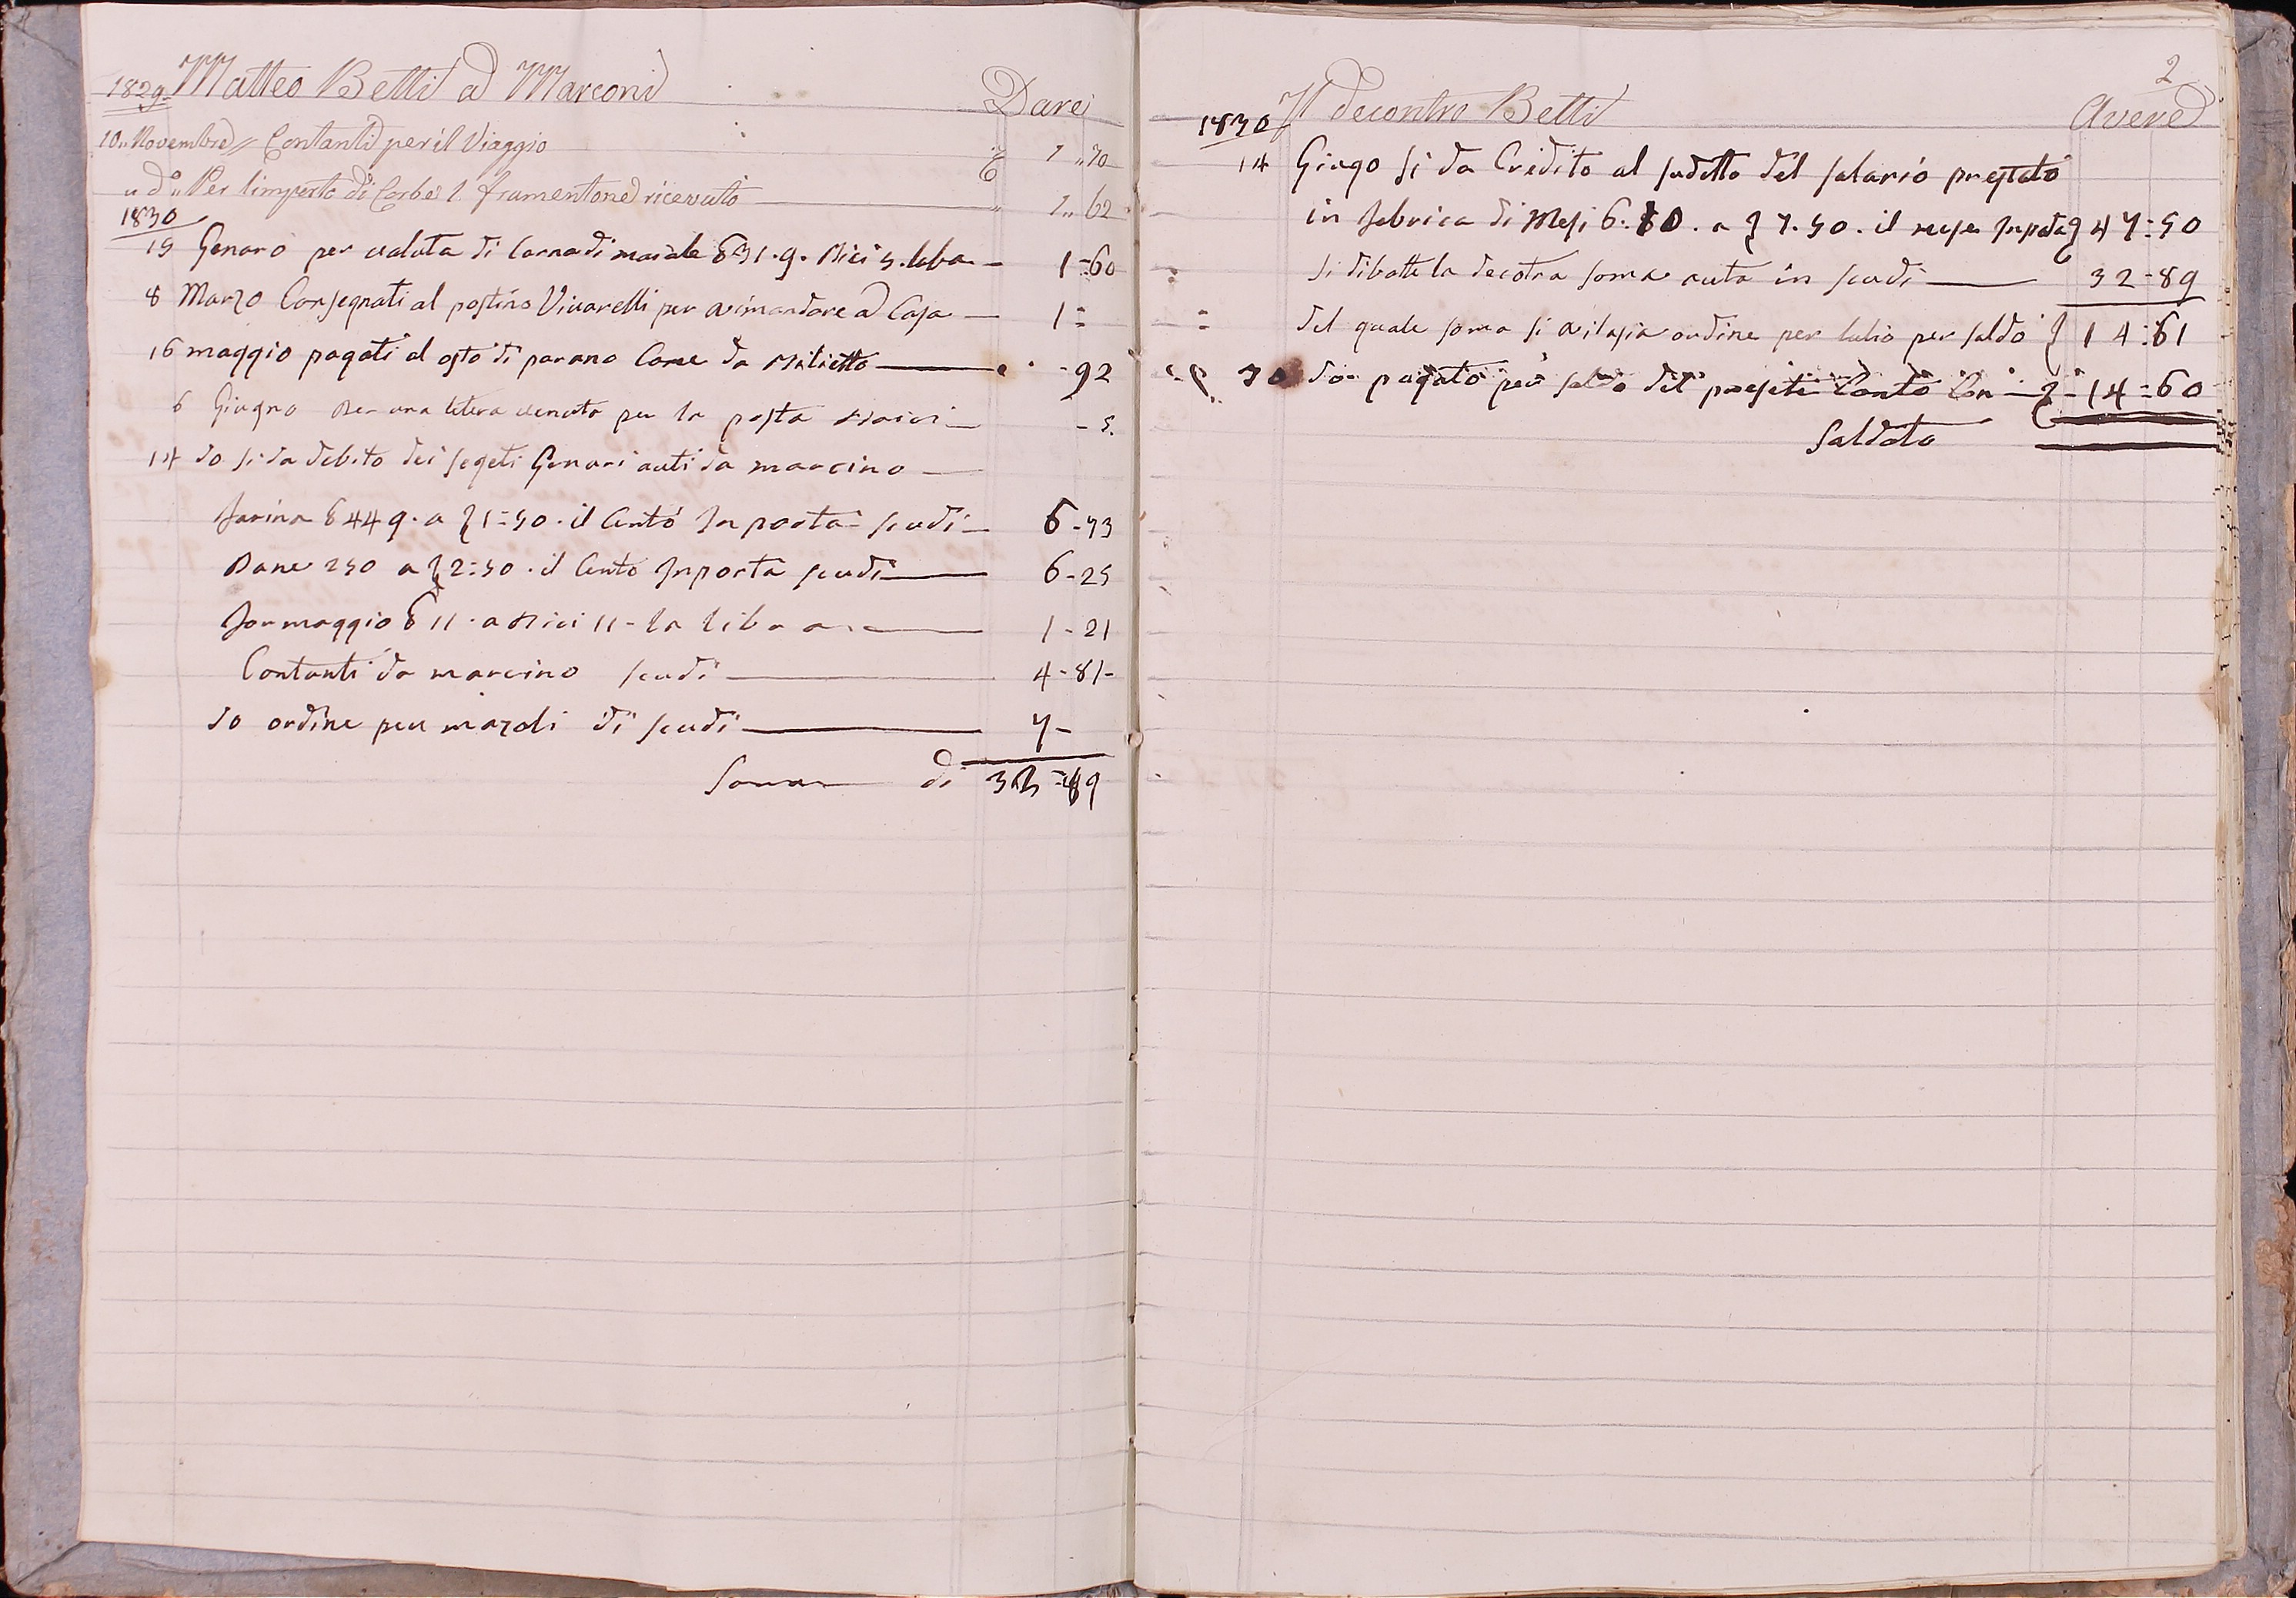 1829 Matteo Betti a Marconi Dare
10 „ Novembre „ Contanti per il Viaggio 1 „ 70
„ d.o „ Per l'importo di Corbe 1. frumentone ricevuto 1 „ 62
1830
15 Genaro per valuta di Carna di maiale 31.9. Bici 5. laba 1=60
8 Marzo Consegnati al postino Vivarelli per rimandare a Casa 1=
16 maggio pagati al osto di parano Come da -92
6 Giugno Per una letera venuta per la posta -5.
14 do si da debito dei segeti Genari auti da marcino
farina 449. a 1=50. il Cento Inporta scudi 6-73
Pane 250 a 2=50. il Cento Inporta scudi 6-25
formaggio 11. a Bici 11- la libra 1-21
Contanti da marcino scudi 4-81-
do ordine per mazoli di scudi 7-
Soma di 32=89
2
1830 Il decontro Betti Avere
14 Giugo si da Credito al sudetto del salario prestato
in fabrica di Mesi 6.10. a 7.50. il mese Inporta 47=50
si dibatte la decotra soma auta in scudi 32-89
del quale soma si rilasia ordine per lulio per saldo 14:61
30 do pagato per saldo del preseti Conto Con 14=60
Saldato